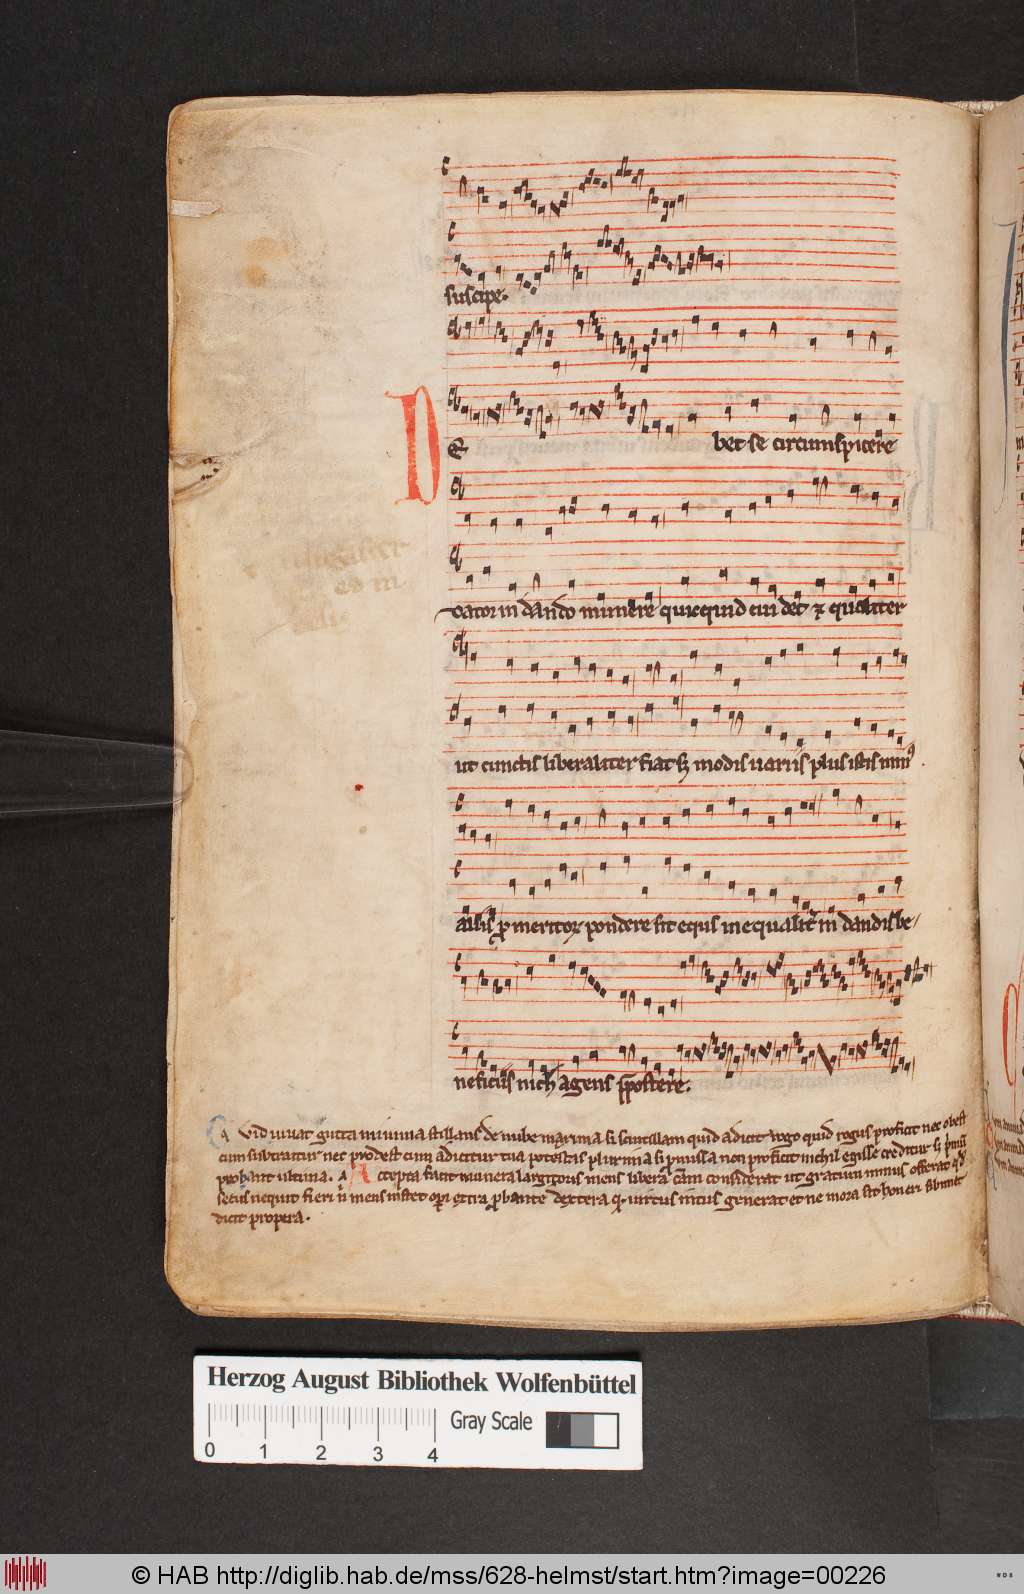 suscipe.
DE bet se circumspicere
dator in dando munere quicquid cui det & qualiter
ut cunctis liberaliter fiat modis uariis plus istis min9
aliis p meritor pondere sit equs inequalit in dandis be-
neficiis nich agens ppostere.
Vid iuuat gutta minima stillans de nube maxima si scintillam quid adicit rogo quid rogus proficit nec obest
cum subtraitur nec prodest cum adicitur tua potestas plurima si pmissa non proficit nichil egisse creditur
probant ultima. A Accepta facit munera largitoris mens libera cam considerat ut gratium minus offerat
secus nequit fieri mens instet opi extra pbante dextera q uirtus intus generat et ne mora sit honeri
dicit propera.
Herzog August Bibliothek Wolfenbüttel
Gray Scale
0 1 2 3 4
© HAB http://diglib.hab.de/mss/628-helmst/start.htm?image=00226